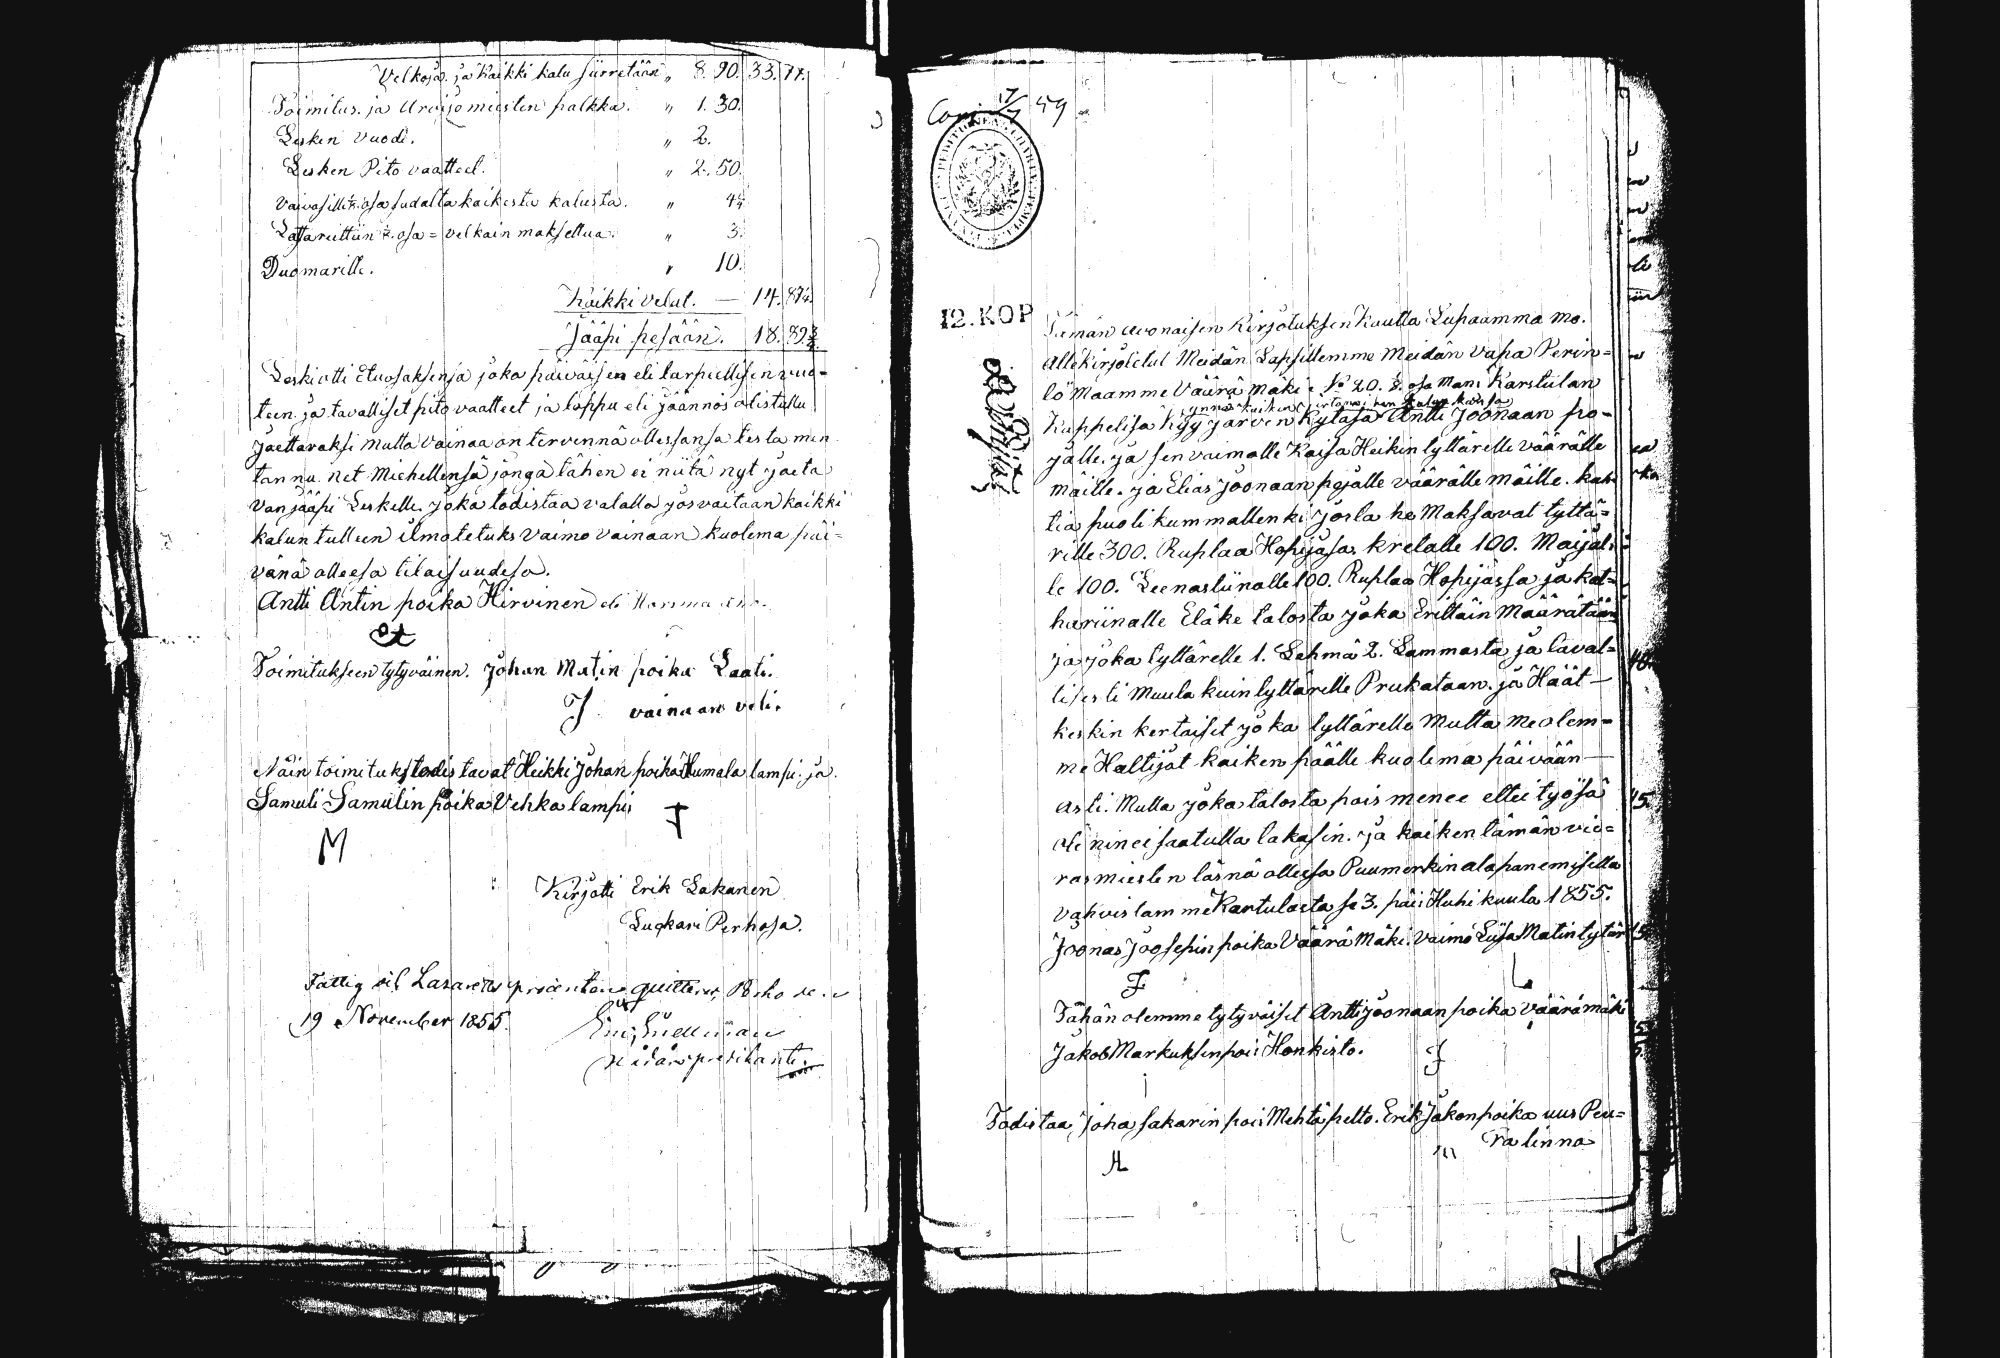 Velkoja. ja Kaikki kalu siirretään " 8. 90. 33. 77.
Toimitus. ja Arvijo miesten palkka. " 1. 30.
Lesken vuodi. " 2.
Lesken Pito vaatteet. " 2. 50.
Vaivasille osa sadalta kaikesta kalusta. " 4¼
Lasarettiin osa = velkain maksettua. " 3.
Duomarille. " 10.
Kaikki velat. — 14. 87¼
Jääpi pesään. 18. 89¾
Leski otti Etuosaksensa joka päiväisen eli tarpeellisen vuo=
teen. ja tavalliset pito vaatteet ja loppu eli jäännös olis tullu
jaettavaksi mutta vainaa on tervennä ollessansa testa men
tannu. net Miehellensä jonga tähen ei niitä nyt jaeta
van jääpi Leskelle. joka todistaa valalla jos vaitaan kaikki
kalun tulleen ilmotetuks vaimo vainaan kuolema päi=
vänä olleesa tilaisuudesa.
Antti Antin poika Hirvinen eli
Toimitukseen tytyväinen. Johan Matin poika Laati.
J vainaan veli.
Näin toimituks todistavat Heikki Johan poika Humala lampi. ja
Samuli Samulin poika Vehka lampi
M
Kirjotti Erik Lakanen
Lugkari Perhosa.
Fattig och Lazaretts procenten quitteras, Perho den
19 November 1855.
Snellman
12. KOP
Tämän avonaisen Kirjotuksen Kautta Lupaamma me.
Allekirjotetut Meidän Lapsillemme Meidän vapa Perin=
tö Maamme Väärä mäki No 20. 8. osa Mani Karstulan
ynnä kaiken irtonaisen kalun kansa
Kappelisa Kyyjärven Kyläsä Antti Joonaan po=
jalle. ja sen vaimolle Kaisa Heikin tyttärelle väärälle
mäille. ja Elias Joonaan pojalle väärälle mäille. kah
tia puoli kummallenki josta he Maksavat tyttä=
rille 300. Ruplaa Hopijasa. kretalle 100. Maijal=
le 100. Leenastiinalle 100. Ruplaa Hopijassa ja kat=
hariinalle Eläke talosta joka Erittäin Määrätään
ja joka tyttärelle 1. Lehmä 2. Lammasta ja taval=
lisesti Muula kuin tyttärille Prukataan. ja Häät —
keskin kertaiset joka tyttärelle Mutta me olem=
me Haltijat kaiken päälle kuolema päivään —
asti. Mutta joka talosta pois menee ettei työsä
ole nin ei saa tulla takasin. ja kaiken tämän vie=
rasmiesten läsnä olleesa Puumerkin ala panemisella
vahvistamme Karstulasta se 3. päi: Huhti kuula 1855.
Joonas Joosepin poika Väärä Mäki. vaimo Liisa Matin tytär
Tähän olemme tytyväiset Antti Joonaan poika väärämäki
Jakob Markuksen poi: Honkisto.
Todistaa, Joha sakarin poi: Mehtä pelto. Erik Jakon poika uus Peu=
ra linna